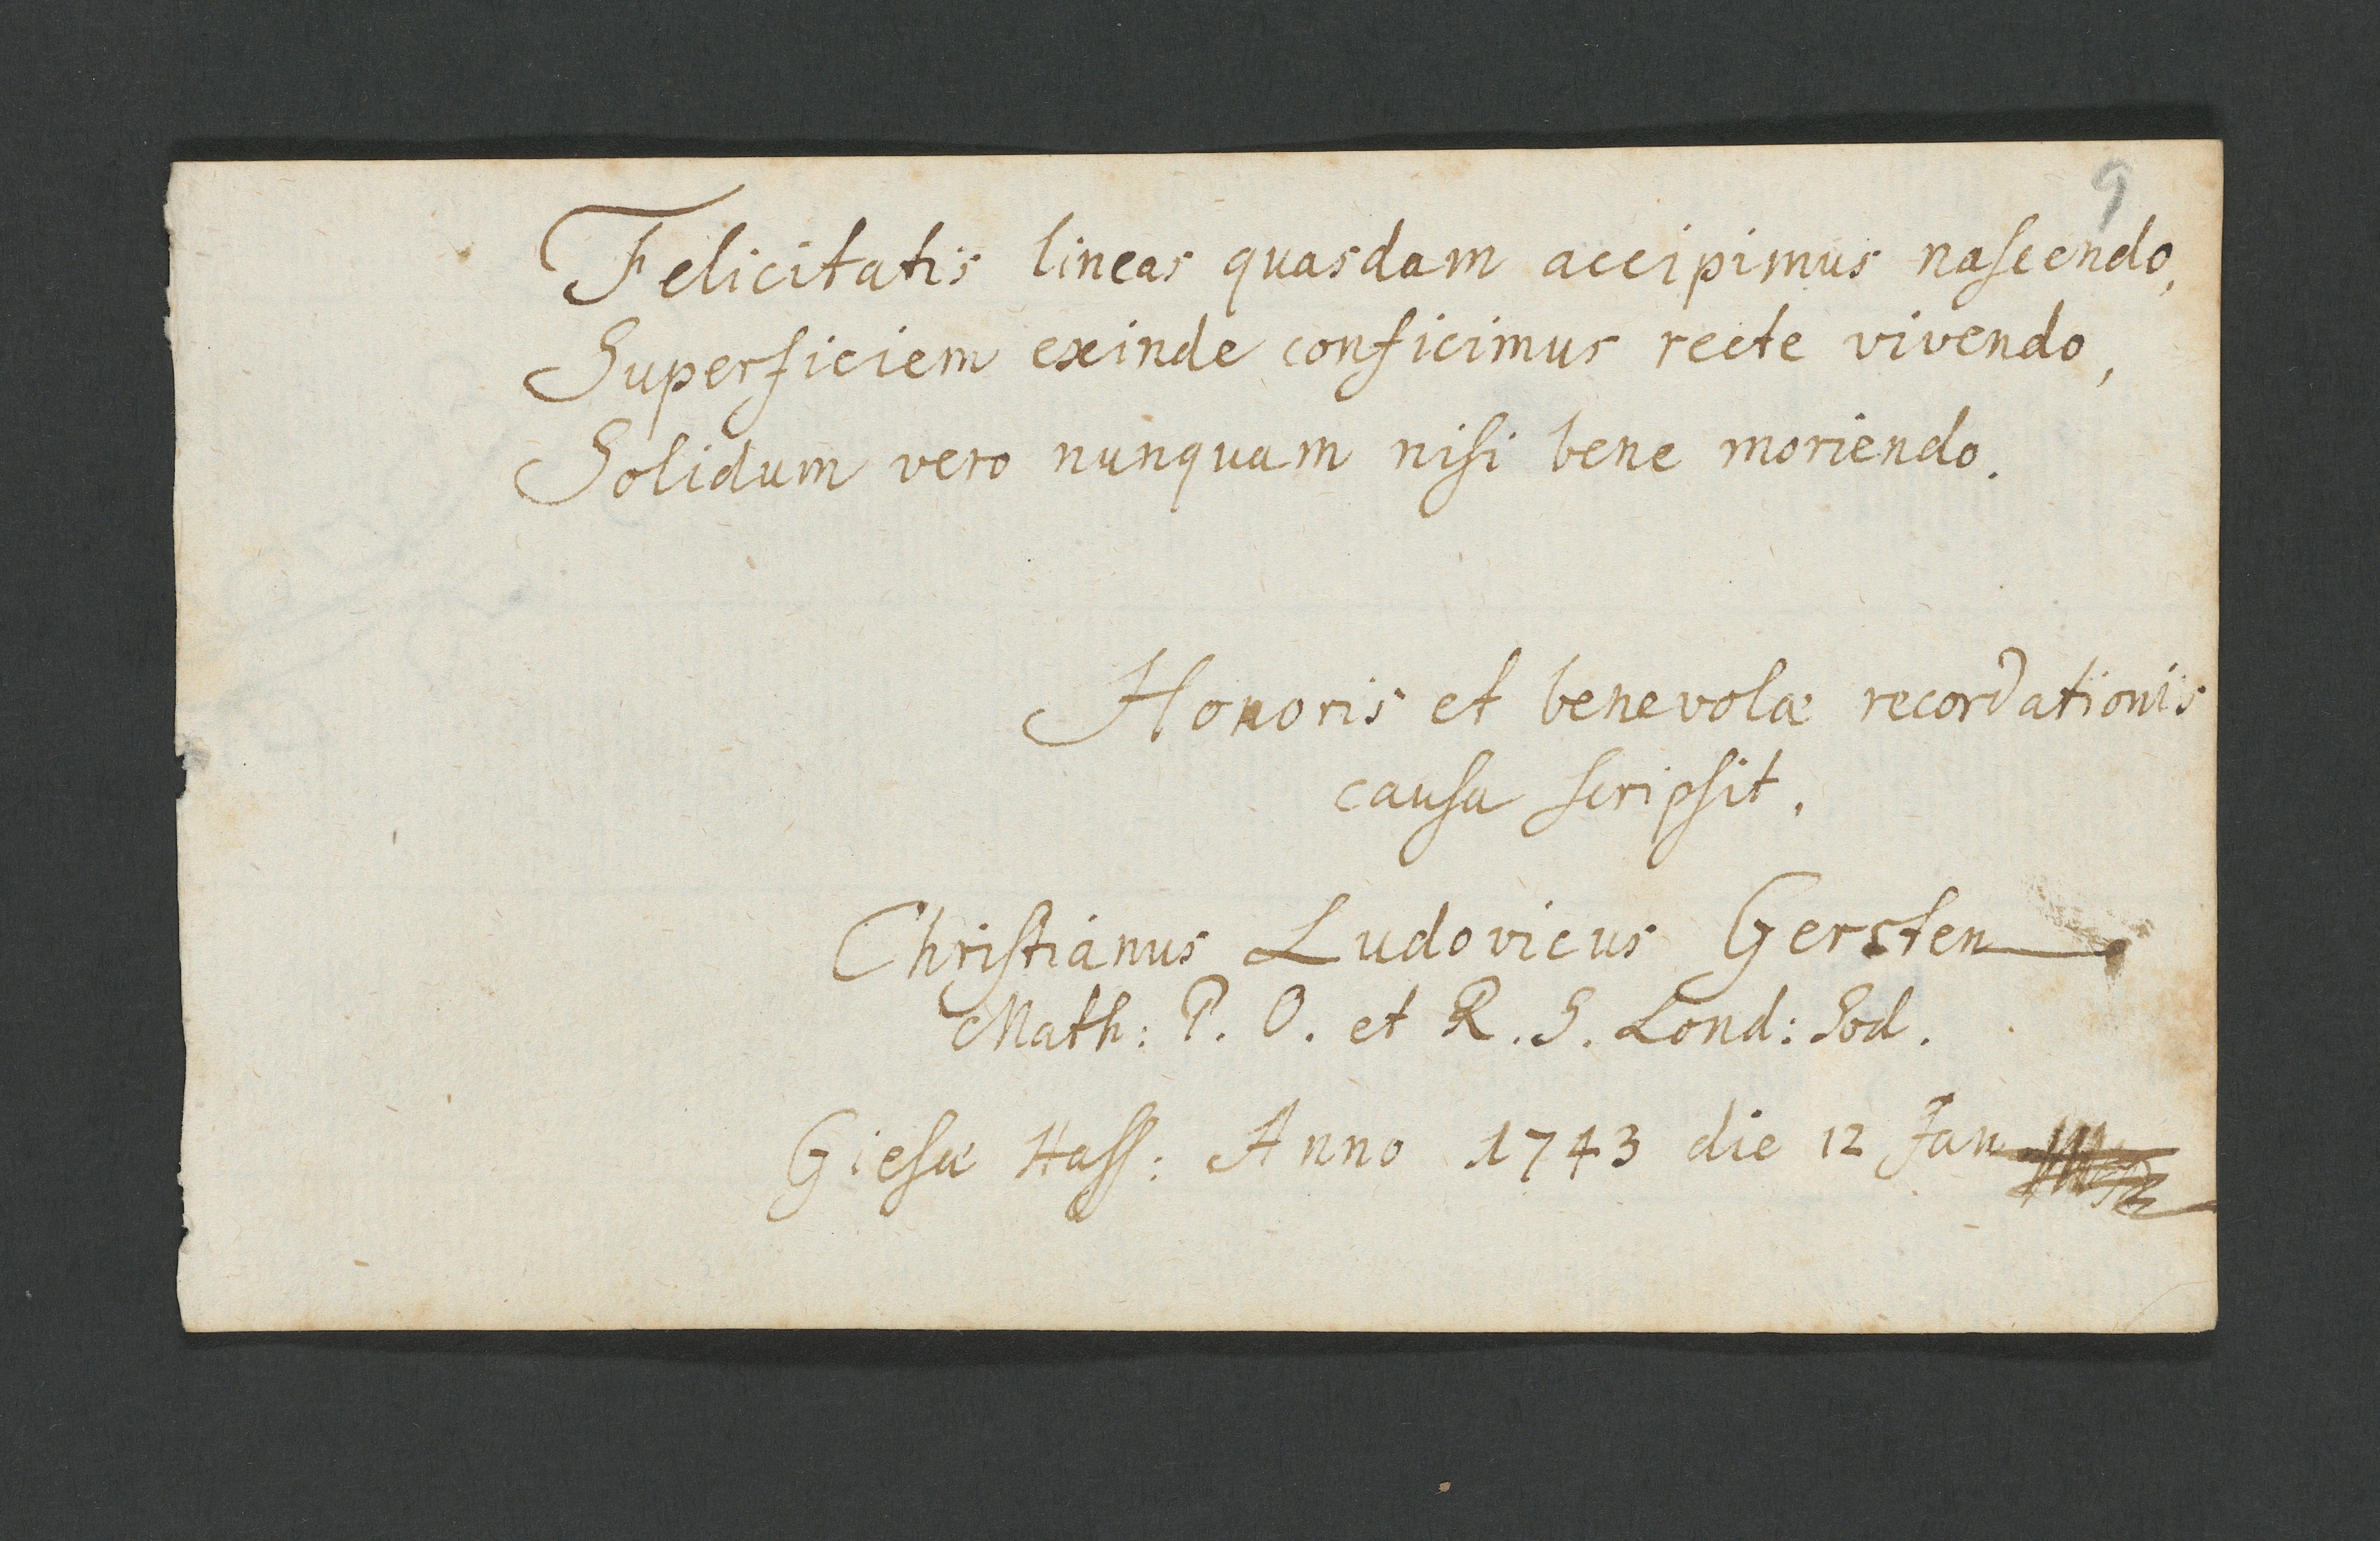 9
Felicitatis lineas quasdam accipimus naſcendo,
Superficiem exinde conficimus recte vivendo,
Solidum vero nunquam niſi bene moriendo.
Honoris et benevolæ recordationis
cauſa ſcripſit.
Chriſtianus Ludovicus Gersten
Math: P. O. et R. S. Lond: Sod.
Gieſæ Haſſ: Anno 1743 die 12 Jan